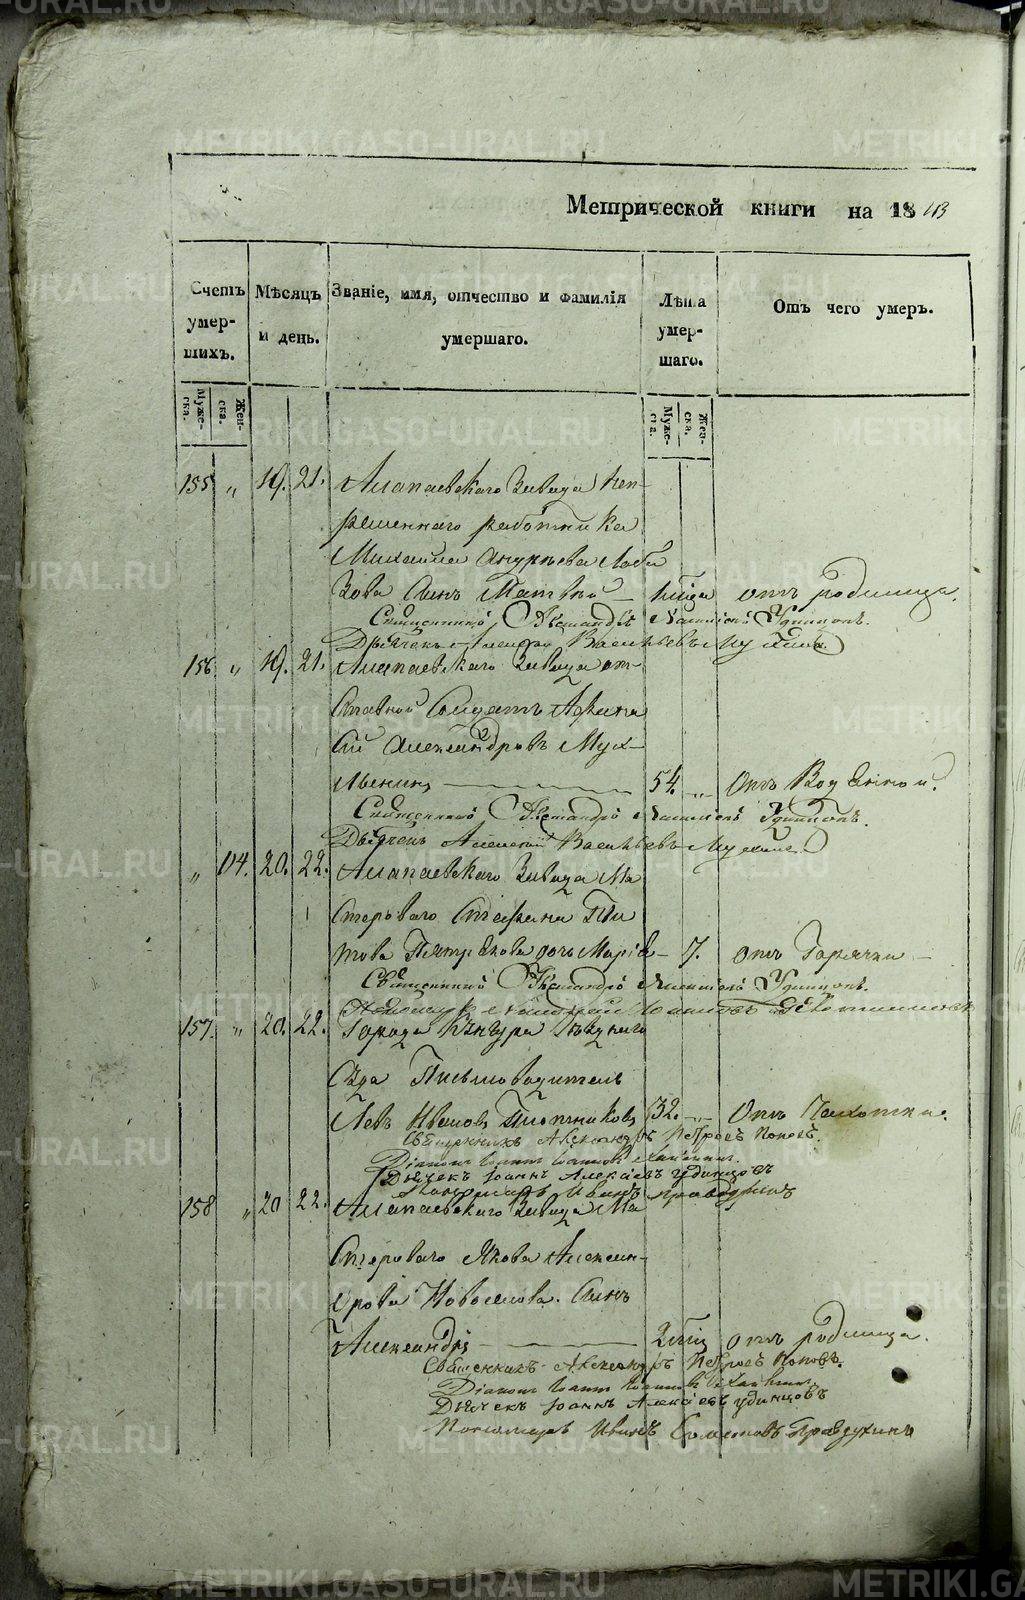 METRIKI.GASO-URAL.RU
Метрической книги на 1843
Счетъ умер-шихъ.
Мѣсяцъ и день.
Званіе, имя, отчество и фамилія умершаго.
Лѣта умер-шаго.
Отъ чего умеръ.
Муже-ска.
Жен-ска.
Муже-ска.
Жен-ска.
155 „ 19. 21. Алапаевскаго Завода Неп-
ременнаго работника
Михаила
зова Сынъ Матвѣй — отъ родимца.
Священникъ Удинцовъ.
Дьячекъ Алексѣй Васильевъ Мухинъ
156 „ 19. 21. Алапаевскаго Завода от-
ставной Солдатъ Афана
сій Александровъ Мух-
54. „ Отъ Водяной.
Священникъ Удинцовъ.
Дьячекъ Алексѣй Васильевъ Мухинъ
„ 114. 20. 22. Алапаевскаго Завода Ма
стероваго Стефана Ти
това дочь Марія — 7. отъ Горячки —
Священникъ Удинцовъ.
157. „ 20. 22. Города Уезднаго
Суда Письмоводитель
Левъ Ивановъ 32. „ Отъ Чахотки.
Священникъ Александръ Петровъ Поповъ.
Діаконъ Іоаннъ
Дьячекъ Іоаннъ Алексѣевъ Удинцовъ
Пономарь Иванъ Правдухинъ
158 „ 20 22. Алапаевскаго Завода Ма
стероваго Якова Алексан-
дрова Новоселова. Сынъ
Александръ — отъ родимца.
Священникъ Александръ Петровъ Поповъ.
Діаконъ Іоаннъ
Дьячекъ Іоаннъ Алексѣевъ Удинцовъ
Пономарь Иванъ Семеновъ Правдухинъ